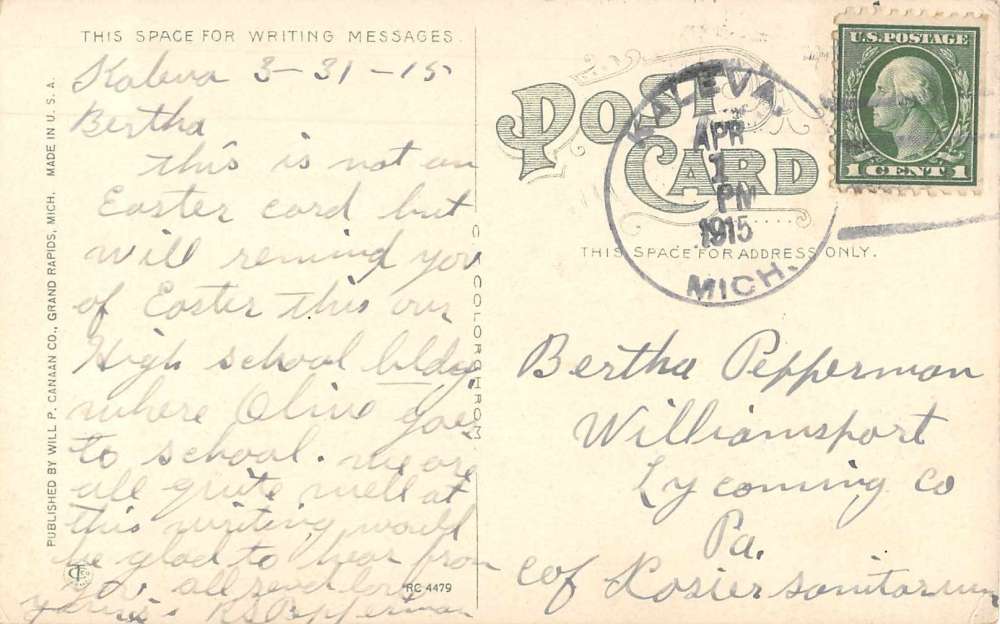 THIS SPACE FOR WRITING MESSAGES.
Kaleva 3-31-15
Bertha
This is not an
Easter card but
will remind you
of Easter this our
High school bldg,
where Olive goes
to school. we are
all quite well at
this writing would
be glad to hear from
you all send love
yours. R S Pepperman
PUBLISHED BY WILL P. CANAAN CO., GRAND RAPIDS, MICH. MADE IN U. S. A.
COLORCHROM
RC 4479
POST CARD
THIS SPACE FOR ADDRESS ONLY.
KALEVA.
APR
1
PM
1915
MICH.
U.S. POSTAGE
1 CENT 1
Bertha Pepperman
Williamsport
Lycoming Co
Pa.
cof Rosier sanitarium